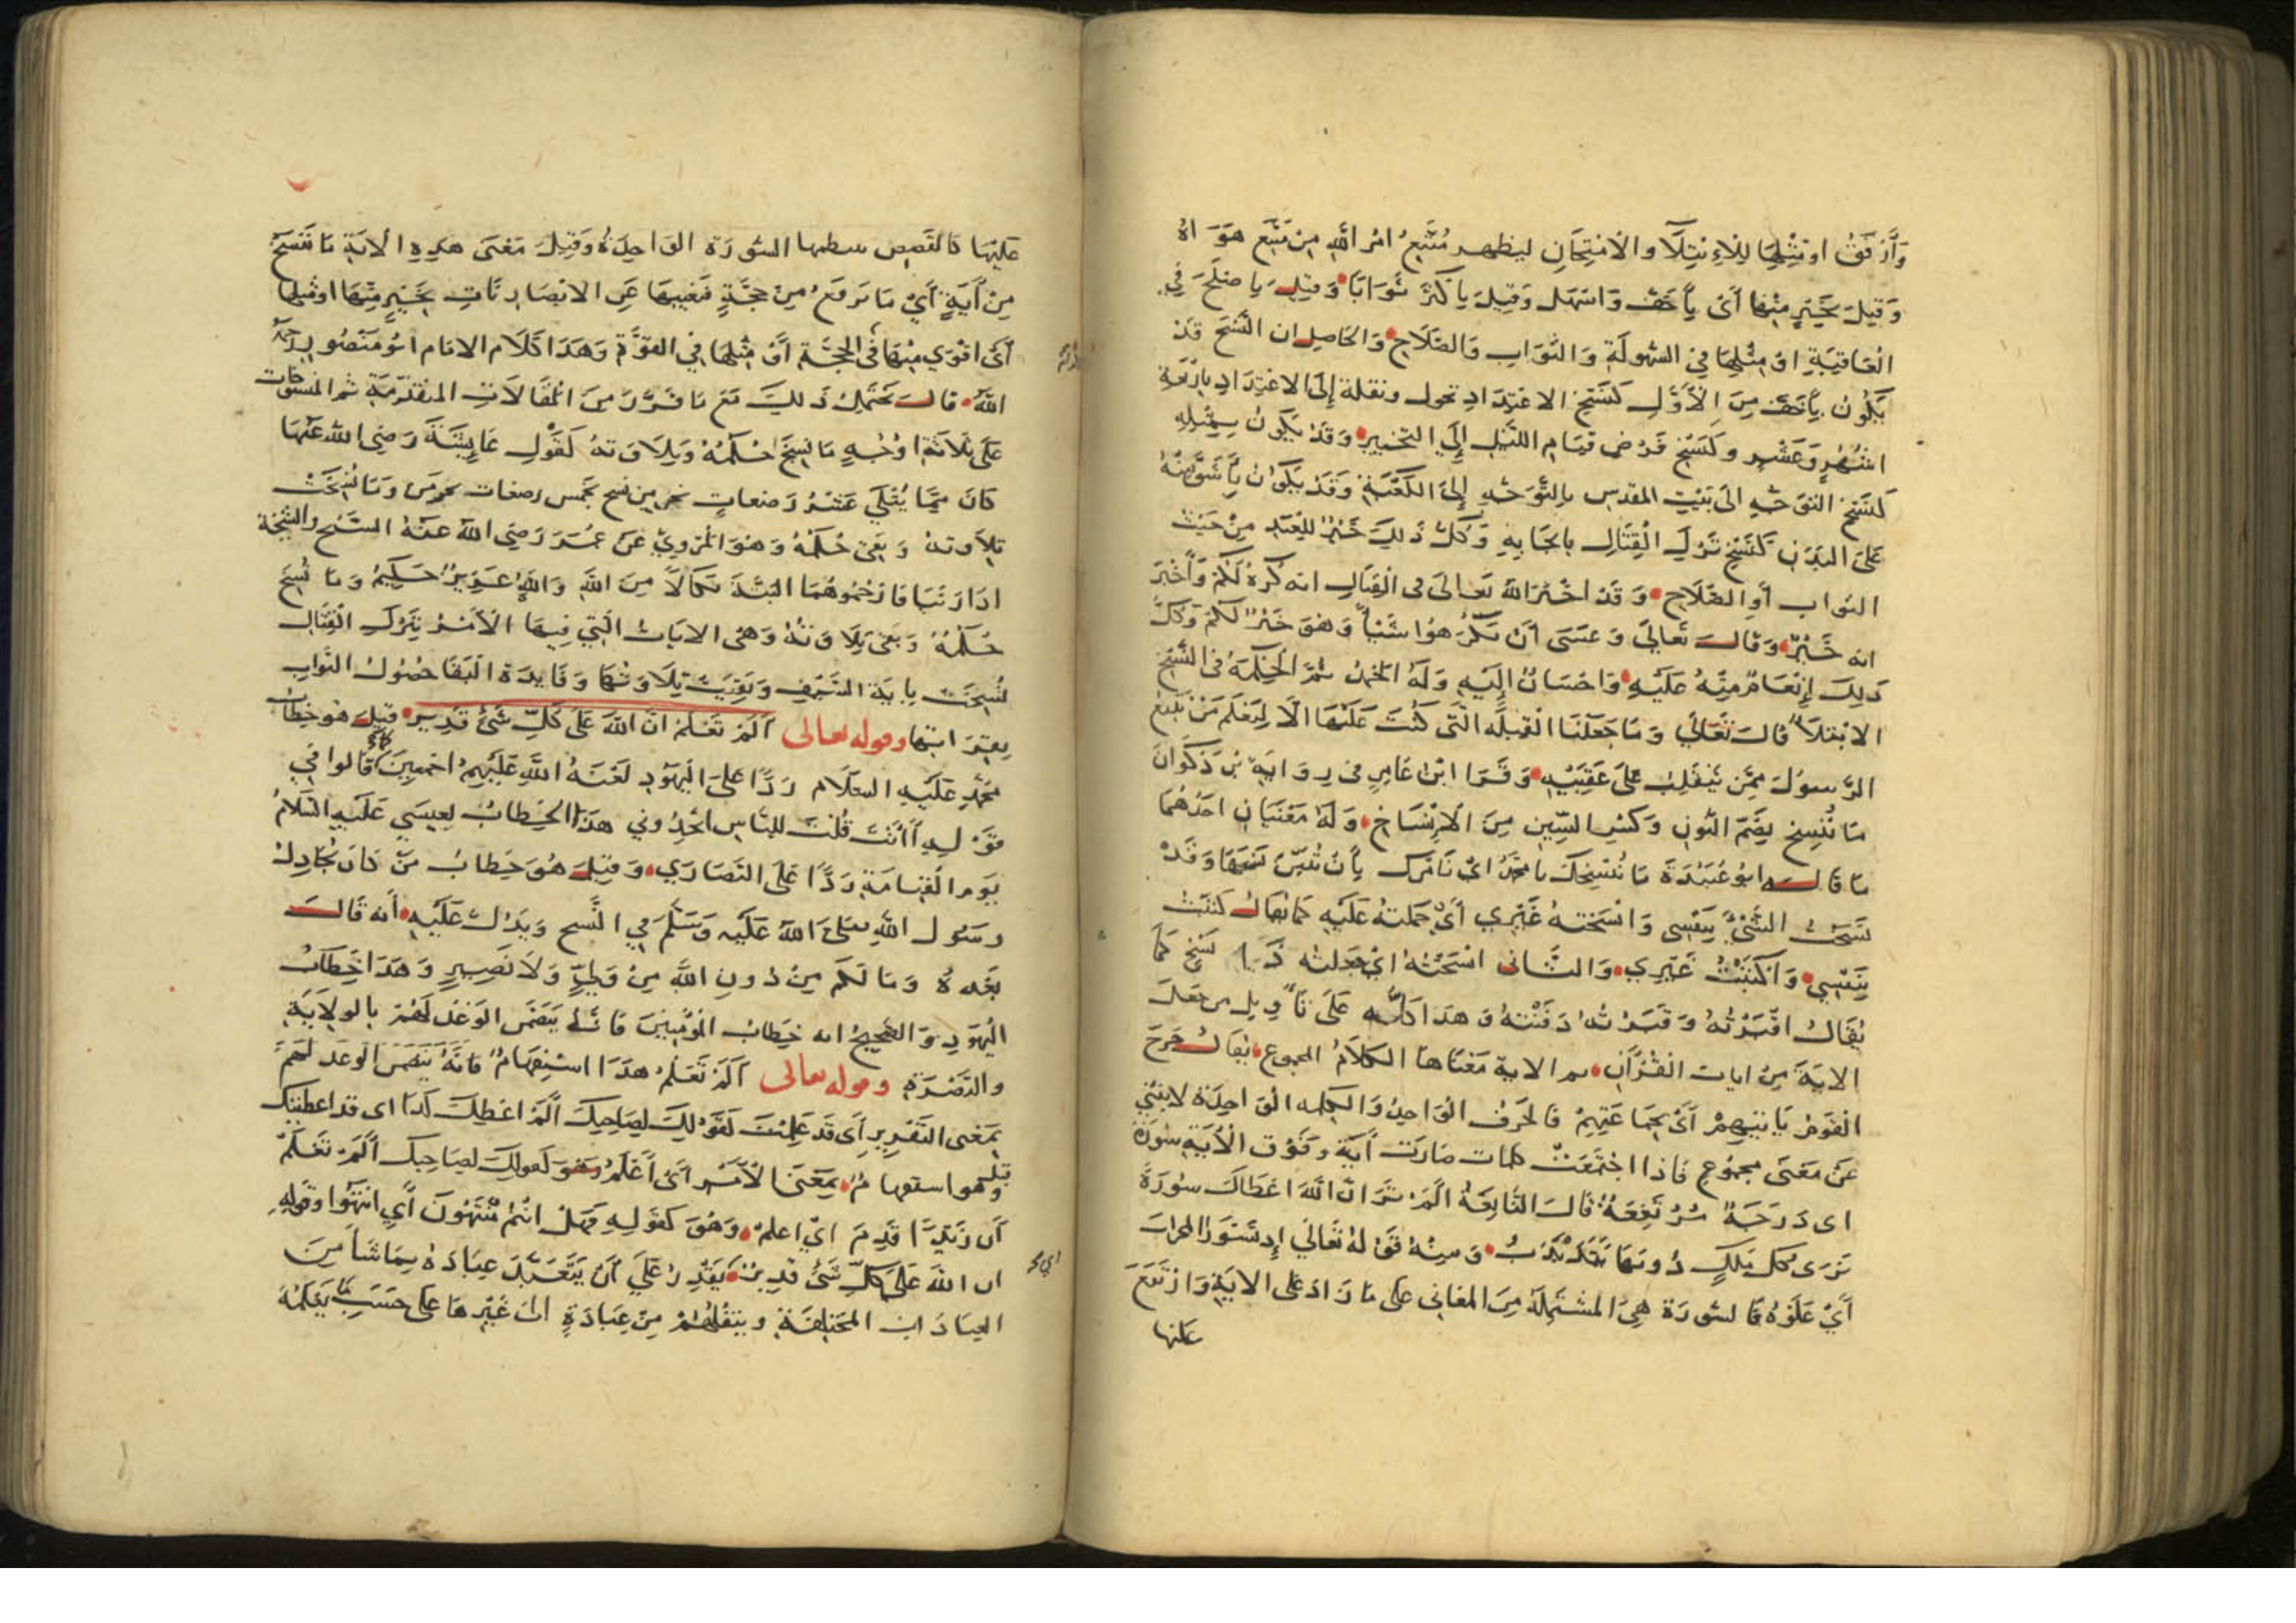 وَأَرْفَقُ اَوْ مِثْلِهَا لِلْاِبْتِلَآءِ وَالْاِمْتِحَانِ ليظهر مُتَّبِعُ امْرِ اللّٰهِ مِنْ مُتَّبِعِ هَوَاهُ
وَقِيلَ بِخَيْرٍ مِنْهَا أَىْ بِأَخَفَّ وَاَسْهَلَ وَقِيلَ بِاَكْثَرَ ثَوَابًا وَقِيلَ بِاَصْلَحَ فِي
الْعَاقِبَةِ اوْ مِثْلِهَا فِي السُّهُولَةِ وَالثَّوَابِ وَالصَّلَاحِ وَالحَاصِلُ ان النَّسْخَ قَدْ
يَكُونُ بِأَخَفَّ مِنَ الْأَوَّلِ كَنَسْخِ الاعْتِدَادِ بحول ونقله إِلَى الاعْتِدَادِ بِاَرْبَعَةِ
اَشْهُرٍ وَعَشْرٍ وكَنَسْخِ فَرْضِ قِيَامِ اللَّيْلِ إِلَى التَّخْيِيرِ وَقَدْ يَكُونُ بِمِثْلِهِ
كَنَسْخِ التَّوَجُّهِ الىَ بَيْتِ المقدِس بِالتَّوَجُّهِ إِلَى الكَعْبَةِ وَقَدْ يَكُونُ بِأَشَقَّ مِنْهُ
عَلَى البَدَنِ كَنَسْخِ تَرْكِ الْقِتَالِ بِايجَابِهِ وَكُلُّ ذَلِكَ خَيْرٌ لِلْعَبْدِ مِنْ حَيْثُ
الثواب أَوِ الصَّلَاحِ وَقَدْ اخْبَرَ اللّٰهُ تَعَالىَ فى الْقِتَالِ انه كُرْهٌ لَكُمْ وَأَخْبَرَ
انه خَيْرٌ وَقَالَ تَعَالىَ وَعَسَى أَنْ تَكْرَهُوا شَيْئاً وَهُوَ خَيْرٌ لَكُمْ وَكُلُّ
ذَلِكَ إِنْعَامٌ مِنْهُ عَلَيْهِ وَاِحْسَانٌ إِلَيْهِ وَلَهُ الحَمْدُ ثُمَّ الْحِكْمَةُ فى النَّسْخِ
الابْتِلَآءُ قَالَ تَعَالىَ وَمَا جَعَلْنَا الْقِبْلَةَ الَّتى كُنْتَ عَلَيْهَا الَّا لِنَعْلَمَ مَنْ يَتَّبِعُ
الرَّسُولَ مِمَّنْ يَنْقَلِبُ عَلَى عَقِبَيْهِ وَقَرَا ابْنُ عَامِرٍ فى رِوَايَةِ بْنِ ذَكْوَانَ
مَا نُنْسِخْ بِضَمِّ النُّونِ وَكَسْرِ السِّينِ مِنَ الْإِنْسَاخِ وَلَهُ مَعْنَيَانِ احَدُهُمَا
مَا قَالَهُ ابُو عُبَيْدَةَ مَا نُنْسِخْكَ يا محمد اىْ نَأمُرك بِأَنْ تُبَيِّنَ نَسْخَهَا وَقَدْ
نسخْتُ الشَّىْءَ بِنَفْسِى وَانْسَخته غَيْرِي أَىْ حَملتهُ عَلَيْهِ كَمَا يُقَالُ كَتَبْتُ
بِنَفْسِي وَاَكْتَبْتُ غَيْرِي وَالثَّانى انْسَخْتُهُ اىْ جعلته ذَا نَسْخٍ كَمَا
يُقَالُ اقْبَرْتُهُ وَقَبَرْتُهُ دَفَنْتُهُ وَهذَا كُلُّه عَلَى تَأْوِيل من جَعَلَ
الايَةَ مِنْ ايات القُرْآنِ ثم الاية مَعْنَاهَا الكَلَامُ المجموع يُقَالُ خَرَجَ
القَومُ بِآيَتِهِمْ أَىْ بِجَمَاعَتِهِمْ فَالحَرْفُ الوَاحِدُ وَالكَلِمه الوَاحِدَة لا تنبئ
عَنْ مَعْنَى مَجمُوعٍ فَاذا اجْتَمَعَتْ كلمات صَارَتْ آيَةً وَفَوْق الْأيَةِ سُورَة
اى دَرَجَةٌ مُرْتَفِعَةٌ قَالَ النَّابِغَةُ أَلَمْ تَرَ انَّ اللّٰهَ اعْطَاكَ سُورَةً
تَرَى كُلَّ مَلْكٍ دُونَهَا يَتَذَبْذَبُ وَمِنْهُ قَوْلهُ تَعَالىَ إِذ تَسَوَّرُوا المحرابَ
أَىْ عَلَوْهُ فَالسُّورَة هِىَ المُشْتَمِلَةُ مِنَ المَعَانِى عَلَى مَا زَادَ عَلى الايَةِ وَارْتَفَعَ
عَلَيْهَا
عَلَيْهَا كَالقَصَصِ سطمها السُّورَة الوَاحِدَةُ وَقِيلَ مَعْنَى هذِهِ الْآيَةِ مَا نَنْسَخْ
مِنْ آيَةٍ أَىْ مَا نَرفَعْ مِنْ حجَّةٍ فَنغيبهَا عَنِ الابْصَارِ نَأتِ بِخَيْرٍ مِنْهَا او مِثْلِهَا
أَىْ اقْوَى مِنْهَا فى الحجَّةِ أَوْ مِثْلِهَا فِي القُوَّةِ وَهَذَا كَلَامُ الامَام ابُو مَنْصُورٍ رَحِمَهُ
اللّٰهُ قَالَ يَحْتَمِلُ ذَلِكَ مَعَ مَا مَرَّ مِنَ المَقَالَاتِ المتقَدِّمَةِ ثم المَنْسُوخَات
عَلَى ثَلَاثَةِ اَوْجُهٍ مَا نُسِخَ حُكْمُهُ وَتِلَاوَتهُ كَقَوْلِ عَائِشَةَ رَضِيَ اللّٰه عَنْهَا
كَانَ مِمَّا يُتْلَى عَشْرُ رَضعَاتٍ يحرمن نسخ بخَمس رضعات يحرمن وَمَا نُسِخَتْ
تِلَاوَتهُ وَبَقِىَ حُكْمُهُ وَهُوَ المَرْوِىُّ عَنْ عُمَرَ رَضِىَ اللّٰهُ عَنْهُ الشَّيْخ والشَّيْخَة
اذَا زَنَيَا فَارْجُمُوهُمَا البَتَّةَ نَكَالًا مِنَ اللّٰهِ وَاللّٰهُ عَزِيزٌ حَكِيمٌ وَمَا نُسِخَ
حُكْمُهُ وَبَقىَ تِلَاوَتُهُ وَهْىَ الايَاتُ الَّتِي فِيهَا الْأَمْرُ بِتَرْكِ الْقِتَالِ
نُسِخَتْ بِايَةِ السَّيْفِ وَبَقِيَتْ تِلَاوَتُهَا وَفَايِدَةُ البَقَا حُصُولُ الثَّوَاب
بِقِرَاءَتِهَا وقوله تعالى أَلَمْ تَعْلَمْ انَّ اللّٰهَ عَلَى كُلِّ شَىْءٍ قَدِيرٌ قِيلَ هُوَ خِطَابُ
مُحَمَّدٍ عَلَيْهِ السَّلَام رَدًّا عَلىَ اليَهُودِ لَعْنَةُ اللّٰهِ عَلَيْهِمْ اجْمَعِينَ كما قَالوا فى
قَوْلِهِ أَأَنْتَ قُلْتَ لِلنَّاسِ اتَّخِذُونِي هَذَا الخِطَابُ لِعِيسَى عَلَيْهِ السَّلَامُ
يَوْمَ القِيَامَةِ رَدًّا عَلَى النَّصَارَى وَقِيلَ هُوَ خِطَابُ مَنْ كَانَ يُجَادِلُ
رسُول اللّٰهِ صَلَى اللّٰهُ عَلَيْهِ وَسَلَّمَ فِي النَّسخِ وَيَدُلُّ عَلَيْهِ أَنه قَالَ
بَعْدهُ وَمَا لَكُمْ مِنْ دُونِ اللّٰهِ مِنْ وَلِىٍّ وَلَا نَصِيرٍ وَهَذَا خِطَابُ
اليَهُودِ وَالصَّحِيحُ انه خِطَابُ المُؤْمِنِينَ فَانَّهُ يَتَضَمَّنُ الوَعْدَ لَهُمْ بالوِلَايَةِ
والنُّصْرَةِ وقوله تعالى أَلَمْ تَعْلَمْ هذَا اسْتِفهَامٌ فَانَّهُ يَتَضَمَّن الوَعدَ لَهُمْ
بِمَعْنَى التَّقْرِيرِ أَى قَدْ عَلِمْتَ كَقَوْلِكَ لِصَاحِبِكَ أَلَمْ اعْطِكَ كَذَا اى قد اعطيتك
وقيل هو استفهامٌ بِمَعْنَى الْأَمْرِ أَىْ أَعْلَمُ وَهُوَ كَقولِكَ لصَاحِبِكَ أَلَمْ تَعْلَمْ
أَن زَيْدًا قَدِمَ اىْ اعلمْ وَهُوَ كَقَوْلِهِ فَهَلْ انْتُمْ مُنْتَهُونَ أَي انْتَهُوا وقوله
ان اللّٰهَ عَلَى كُلِّ شَىْءٍ قَدِيرٌ يَقْدِرُ عَلَى أَنْ يَتَعَبَّدَ عِبَادَهُ بِمَا شَاءَ مِنَ
العِبَادَاتِ المُخْتَلِفَةِ وينقُلُهُمْ مِنْ عِبَادَةٍ الىَ غَيْرِهَا عَلَى حَسَبِ مَا يَعْلَمُهُ